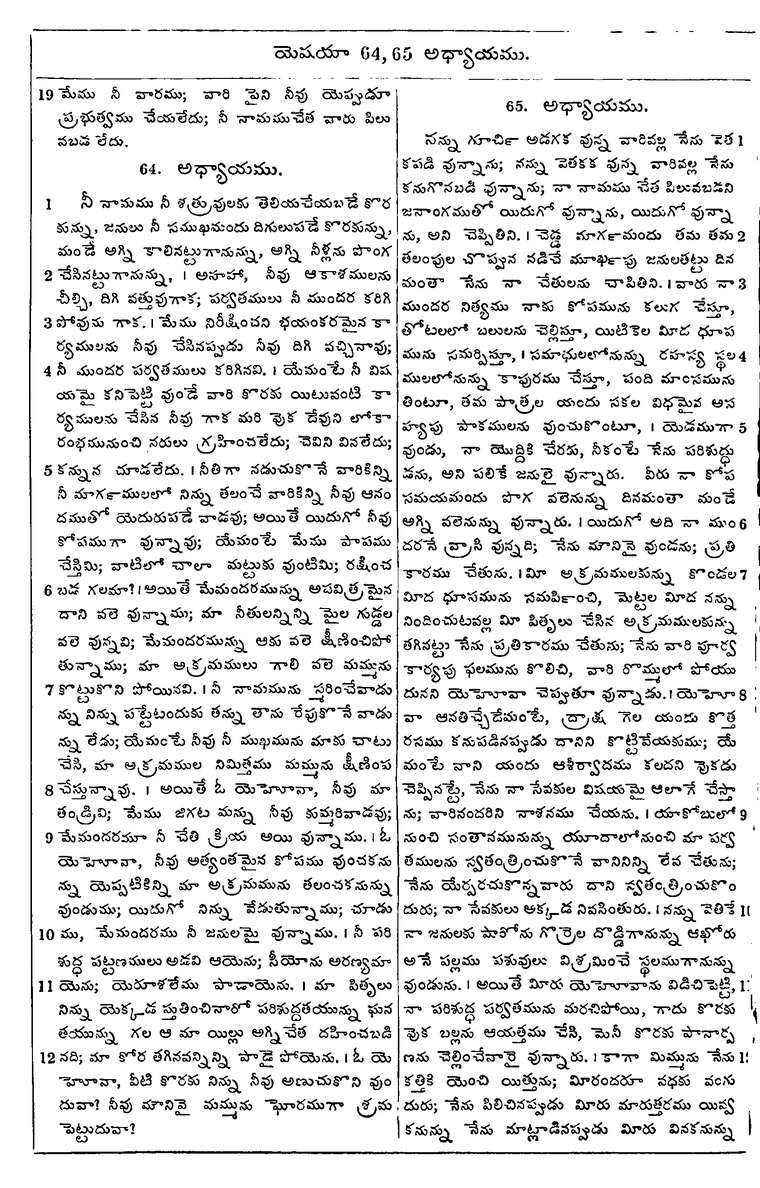 యెషయా 64, 65 అధ్యాయము.
19 మేము నీ వారము; వారి పైని నీవు యెప్పుడూ
ప్రభుత్వము చేయలేదు; నీ నామముచేత వారు పిలు
వబడ లేదు.
64. అధ్యాయము.
1 నీ నామము నీ శత్రువులకు తెలియచేయబడే కొర
కున్ను, జనులు నీ సముఖమందు దిగులుపడే కొరకున్ను,
మండే అగ్ని కాలినట్టుగానున్ను, అగ్ని నీళ్లను పొంగ
2 చేసినట్టుగానున్ను, । అహహా, నీవు ఆకాశములను
చీల్చి, దిగి వత్తువుగాక; పర్వతములు నీ ముందర కరిగి
3 పోవును గాక. । మేము నిరీక్షించని భయంకరమైన కా
ర్యములను నీవు చేసినప్పుడు నీవు దిగి వచ్చినావు;
4 నీ ముందర పర్వతములు కరిగినవి. । యేమంటే నీ విష
యమై కనిపెట్టి వుండే వారి కొరకు యిటువంటి కా
ర్యములను చేసిన నీవు గాక మరి వొక దేవుని లోకా
రంభమునుంచి నరులు గ్రహించలేదు; చెవిని వినలేదు;
5 కన్నున చూడలేదు. । నీతిగా నడుచుకొనే వారికిన్ని
నీ మార్గములలో నిన్ను తలంచే వారికిన్ని నీవు ఆనం
దముతో యెదురుపడే వాడవు; అయితే యిదుగో నీవు
కోపముగా వున్నావు; యేమంటే మేము పాపము
చేస్తిమి; వాటిలో చాలా మట్టుకు వుంటిమి; రక్షించ
6 బడ గలమా? । అయితే మేమందరమున్ను అపవిత్రమైన
దాని వలె వున్నాము; మా నీతులన్నిన్ని మైల గుడ్డల
వలె వున్నవి; మేమందరమున్ను ఆకు వలె క్షీణించిపో
తున్నాము; మా అక్రమములు గాలి వలె మమ్మును
7 కొట్టుకొని పోయినవి. । నీ నామమును స్మరించేవాడు
న్ను నిన్ను పట్టేటందుకు తన్ను తాను రేపుకొనే వాడు
న్ను లేడు; యేమంటే నీవు నీ ముఖమును మాకు చాటు
చేసి, మా అక్రమముల నిమిత్తము మమ్మును క్షీణింప
8 చేస్తున్నావు. । అయితే ఓ యెహోవా, నీవు మా
తండ్రివి; మేము జిగట మన్ను నీవు కుమ్మరివాడవు;
9 మేమందరమూ నీ చేతి క్రియ అయి వున్నాము. । ఓ
యెహోవా, నీవు అత్యంతమైన కోపము వుంచకను
న్ను యెప్పటికిన్ని మా అక్రమమును తలంచకనున్ను
వుండుము; యిదుగో నిన్ను వేడుతున్నాము; చూడు
10 ము, మేమందరము నీ జనులమై వున్నాము. । నీ పరి
శుద్ధ పట్టణములు అడవి ఆయెను; సీయోను అరణ్యమా
11 యెను; యెరూశలేము పాడాయెను. । మా పితృలు
నిన్ను యెక్కడ స్తుతించినారో పరిశుద్ధతయున్ను ఘన
తయున్ను గల ఆ మా యిల్లు అగ్నిచేత దహించబడి
12 నది; మా కోర తగినవన్నిన్ని పాడై పోయెను. । ఓ యె
హోవా, వీటి కొరకు నిన్ను నీవు అణుచుకొని వుం
దువా? నీవు మౌనివై మమ్మును ఘోరముగా శ్రమ
పెట్టుదువా?
65. అధ్యాయము.
నన్ను గూర్చి అడగక వున్న వారివల్ల నేను వెత 1
కపడి వున్నాను; నన్ను వెతకక వున్న వారివల్ల నేను
కనుగొనబడి వున్నాను; నా నామము చేత పిలువబడని
జనాంగముతో యిదుగో వున్నాను, యిదుగో వున్నా
ను, అని చెప్పితిని. । చెడ్డ మార్గమందు తమ తమ 2
తలంపుల చొప్పున నడిచే మూర్ఖపు జనులతట్టు దిన
మంతా నేను నా చేతులను చాపితిని. । వారు నా 3
ముందర నిత్యము నాకు కోపమును కలుగ చేస్తూ,
తోటలలో బలులను చెల్లిస్తూ, యిటికెల మీద ధూప
మును సమర్పిస్తూ, । సమాధులలోనున్ను రహస్య స్థల 4
ములలోనున్ను కాపురము చేస్తూ, పంది మాంసమును
తింటూ, తమ పాత్రల యందు సకల విధమైన అస
హ్యపు పాకములను వుంచుకొంటూ, । యెడముగా 5
వుండు, నా యొద్దికి చేరకు, నీకంటే నేను పరిశుద్ధు
డను, అని పలికే జనులై వున్నారు. వీరు నా కోప
సమయమందు పొగ వలెనున్ను దినమంతా మండే
అగ్ని వలెనున్ను వున్నారు. । యిదుగో అది నా ముం 6
దరనే వ్రాసి వున్నది; నేను మౌనినై వుండను; ప్రతి
కారము చేతును. । మీ అక్రమములకున్ను కొండల 7
మీద ధూపమును సమర్పించి, మెట్టల మీద నన్ను
నిందించుటవల్ల మీ పితృలు చేసిన అక్రమములకున్ను
తగినట్టు నేను ప్రతికారము చేతును; నేను వారి పూర్వ
కార్యపు ఫలమును కొలిచి, వారి రొమ్ములో పోయు
దునని యెహోవా చెప్పుతూ వున్నాడు. । యెహో 8
వా ఆనతిచ్చేదేమంటే, ద్రాక్ష గెల యందు కొత్త
రసము కనుపడినప్పుడు దానిని కొట్టివేయకుము; యే
మంటే వాని యందు ఆశీర్వాదము కలదని వొకడు
చెప్పినట్టే, నేను నా సేవకుల విషయమై ఆలాగే చేస్తా
ను; వారినందరిని నాశనము చేయను. । యాకోబులో 9
నుంచి సంతానమునున్ను యూదాలోనుంచి మా పర్వ
తములను స్వతంత్రించుకొనే వానినిన్ని లేవ చేతును;
నేను యేర్పరచుకొన్నవారు దాని స్వతంత్రించుకొం
దురు; నా సేవకులు అక్కడ నివసింతురు. । నన్ను వెతికే 10
నా జనులకు షారోను గొర్రెల దొడ్డిగానున్ను ఆఖోరు
అనే పల్లము పశువులు విశ్రమించే స్థలముగానున్ను
వుండును. । అయితే మీరు యెహోవాను విడిచిపెట్టి, 1
నా పరిశుద్ధ పర్వతమును మరచిపోయి, గాదు కొరకు
వొక బల్లను ఆయత్తము చేసి, మెనీ కొరకు పానార్ప
ణను చెల్లించేవారై వున్నారు. । కాగా మిమ్మును నేను 1
కత్తికి యెంచి యిత్తును; మీరందరూ వధకు వంగు
దురు; నేను పిలిచినప్పుడు మీరు మారుత్తరము యివ్వ
కనున్ను నేను మాట్లాడినప్పుడు మీరు వినకనున్ను